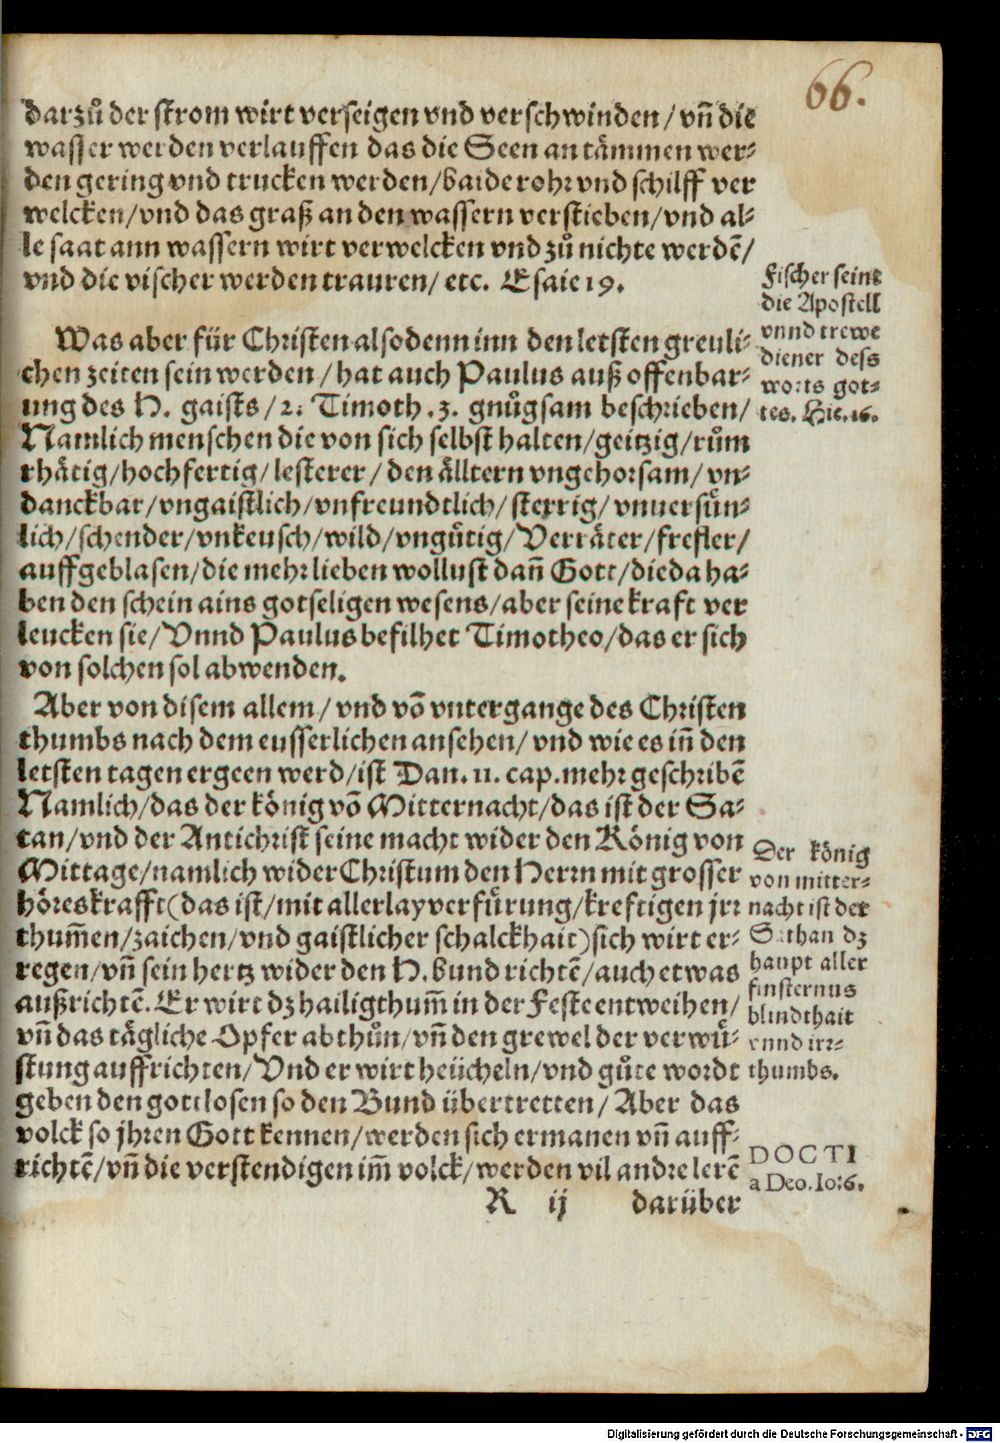 66.
darzů der strom wirt verseigen vnd verschwinden / vñ die
wasser werden verlauffen das die Seen an tämmen wer-
den gering vnd trucken werden/baide rohr vnd schilff ver
welcken/vnd das graß an den wassern verstieben/vnd al-
le saat ann wassern wirt verwelcken vnd zů nichte werdē/
vnd die vischer werden trauren/ etc. Esaie 19.
Fischer seint
die Apostell
vnnd trewe
diener dess
worts got-
tes. Hie.16.
Was aber für Christen alsodenn inn den letsten greuli-
chen zeiten sein werden / hat auch Paulus auß offenbar-
ung des H. gaists/2. Timoth .3. gnůgsam beschrieben/
Namlich menschen die von sich selbst halten/geitzig/rům
rhätig/hochfertig/lesterer/den älltern vngehorsam/vn-
danckbar/vngaistlich/vnfreundtlich/sterrig/vnuersůn-
lich/schender/vnkeusch/wild/vngůtig/Verräter/frefler/
auffgeblasen/die mehr lieben wollust dañ Gott/die da ha-
ben den schein ains gotseligen wesens/aber seine kraft ver
leucken sie/Vnnd Paulus befilhet Timotheo/das er sich
von solchen sol abwenden.
Aber von disem allem/ vnd vō vntergange des Christen
thumbs nach dem eusserlichen ansehen/ vnd wie es iñ den
letsten tagen ergeen werd/ist Dan. 11. cap. mehr geschribē
Namlich/das der könig vō Mitternacht/das ist der Sa-
tan/vnd der Antichrist seine macht wider den König von
Mittage/namlich wider Christum den Herrn mit grosser
höreskrafft(das ist/mit allerlay verfůrung/kreftigen jrr
thum̄en/zaichen/vnd gaistlicher schalckhait)sich wirt er-
regen/vñ sein hertz wider den H. bund richtē/auch etwas
außrichtē. Er wirt dz hailigthum̄ in der Feste entweihen/
vñ das tägliche Opfer abthůn/vñ den grewel der verwů-
stung auffrichten/Vnd er wirt heücheln/vnd gůte wordt
geben den gottlosen so den Bund übertretten/ Aber das
volck so jhren Gott kennen/werden sich ermanen vñ auff-
richtē/vñ die verstendigen im̄ volck/werden vil andre lerē
Der könig
von mitter-
nacht ist der
Sathan dz
haupt aller
finsternus
blindthait
vnnd irr-
thumbs.
DOCTI
a Deo. Io:6.
R ij darüber
Digitalisierung gefördert durch die Deutsche Forschungsgemeinschaft - DFG